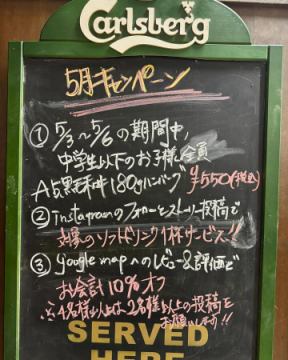 Carlsberg
5月キャンペーン
① 5/3〜5/6の期間中、
中学生以下のお子様全員
A5黒毛和牛180gハンバーグ ¥550(税込)
② instagramのフォローとストーリー投稿で
のソフトドリンク1杯サービス!!
③ google mapへのレビュー&評価で
お会計10%オフ
※4名様以上は2名様以上の投稿を
お願いします!!
SERVED
HERE